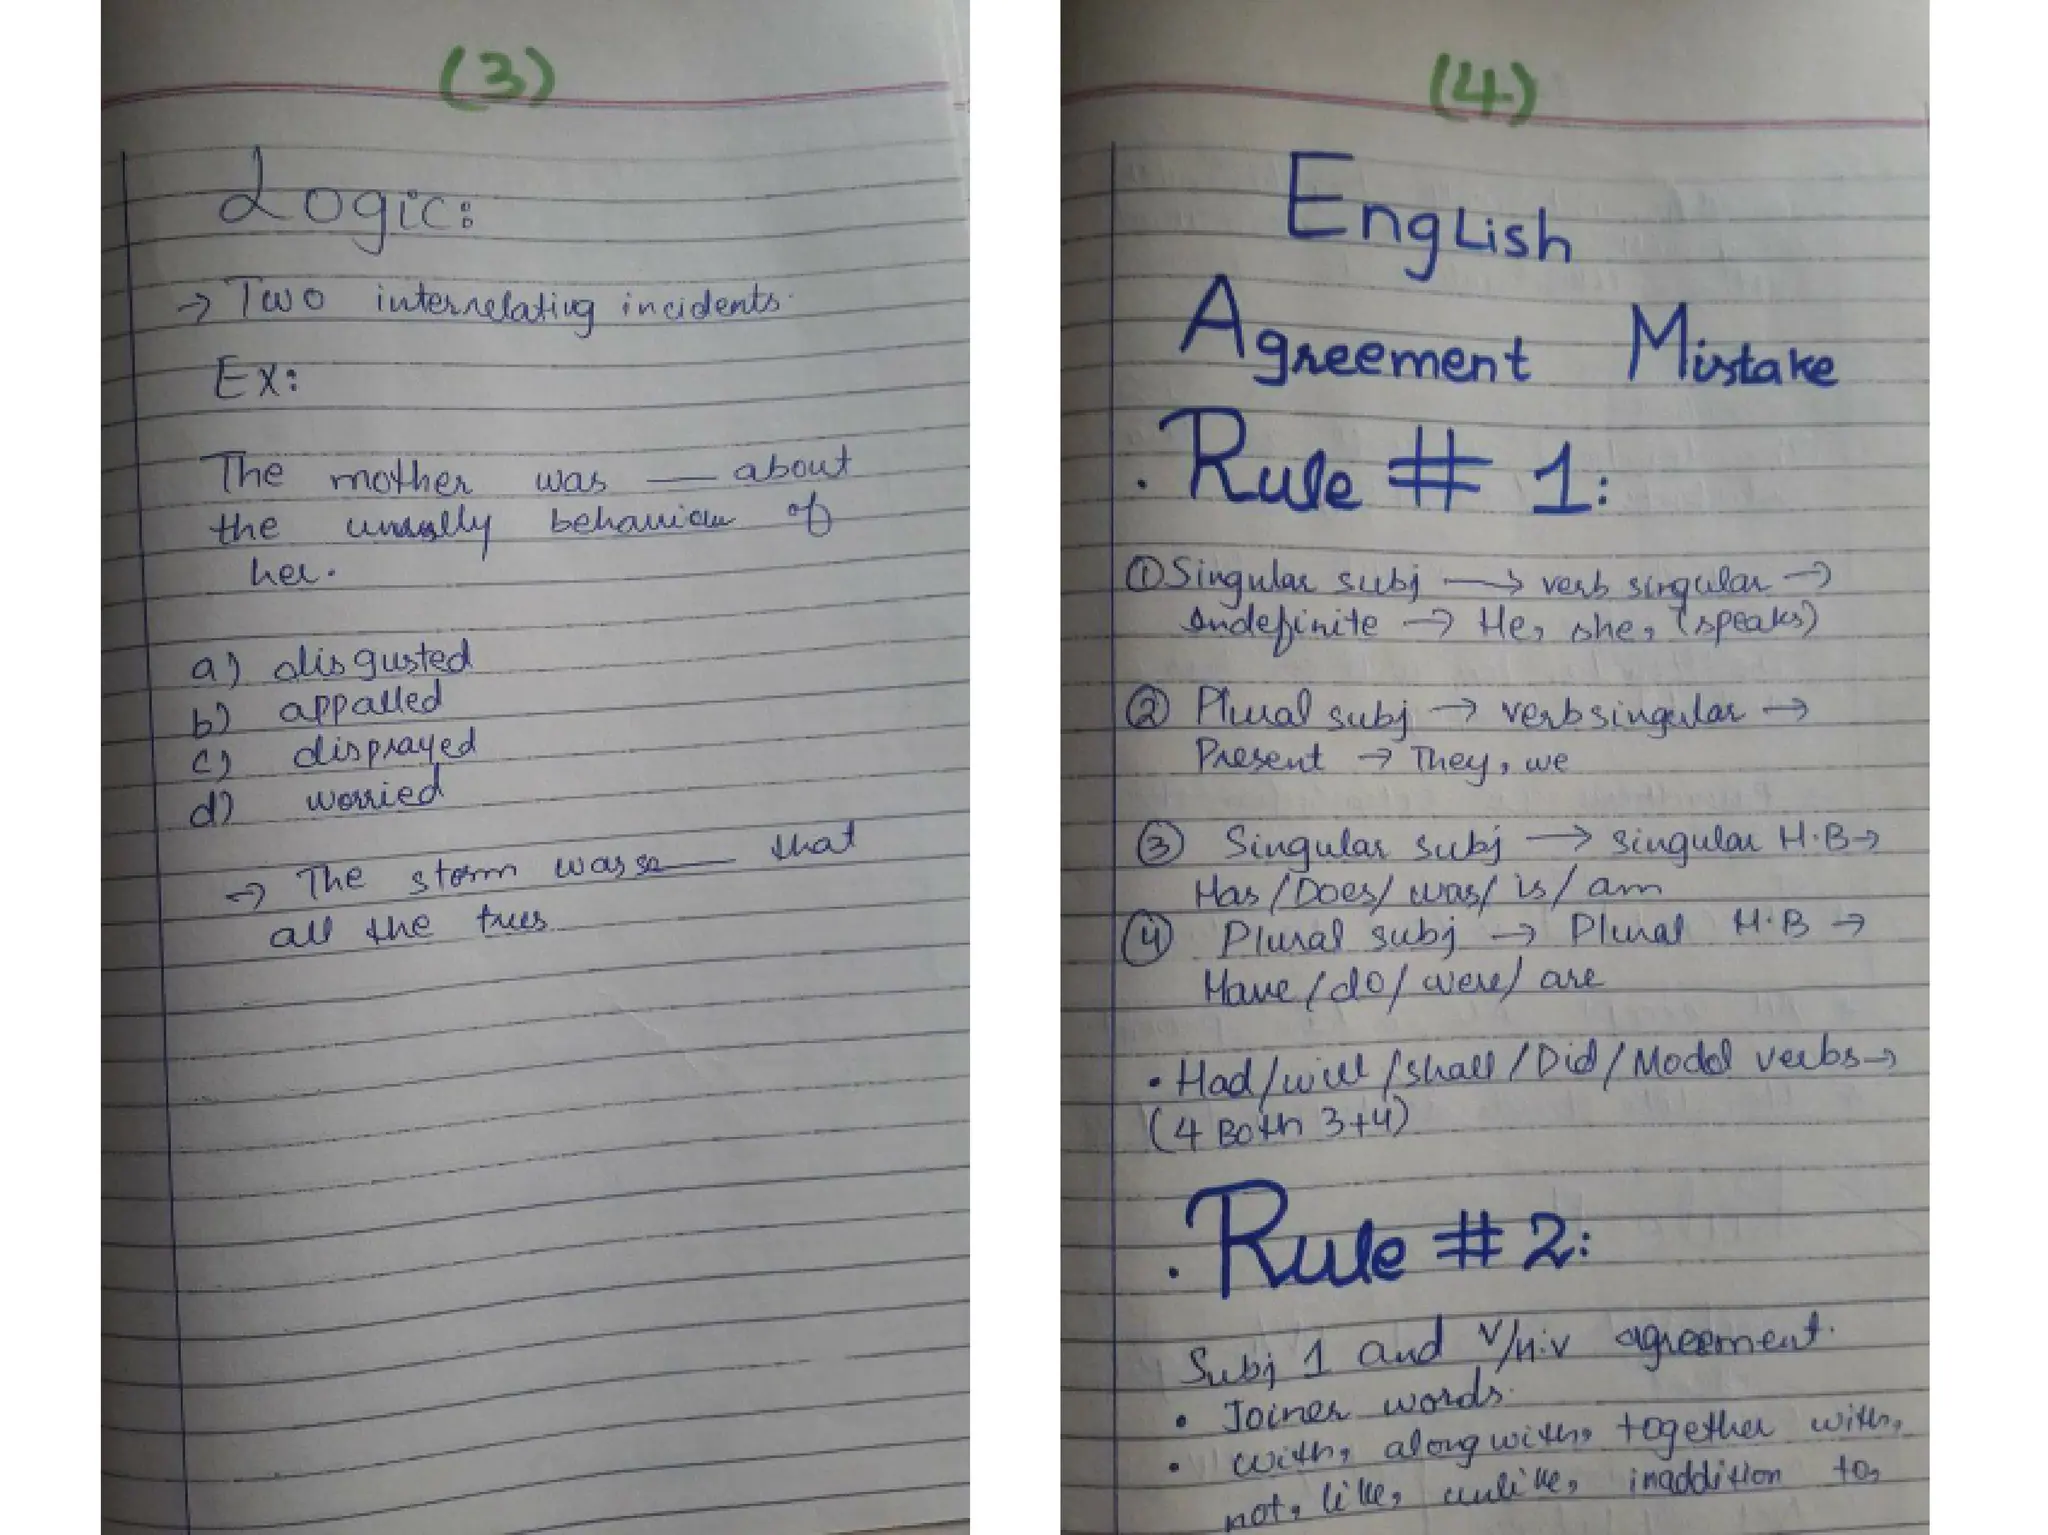 (3)
Logic:
→ Two interrelating incidents.
Ex:
The mother was — about
the behaviour of
her.
a) disgusted
b) appalled
c) disprayed
d) worried
→ The storm was so — that
all the trees
(4)
English
Agreement Mistake
. Rule # 1:
① Singular subj → verb singular →
Indefinite → He, she, (speaks)
② Plural subj → verb singular →
Present → They, we
③ Singular subj → singular H.B →
Has / Does / was / is / am
④ Plural subj → Plural H.B →
Have / do / were / are
• Had / will / shall / Did / Modal verbs →
(4 Both 3+4)
. Rule # 2:
Subj 1 and V/H.V agreement.
• Joiner words.
• with, along with, together with,
not, like, unlike, inaddition to,